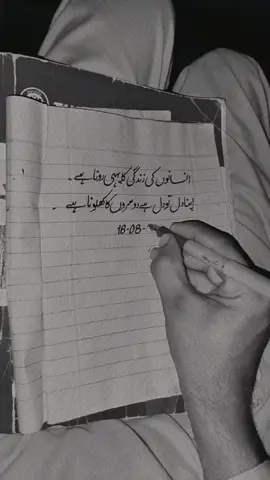 انسانوں کی زندگی کا یہی رونا ہے ۔
اپنا دل تو دل ہے دوسروں کا کھلونا ہے ۔
18-08-